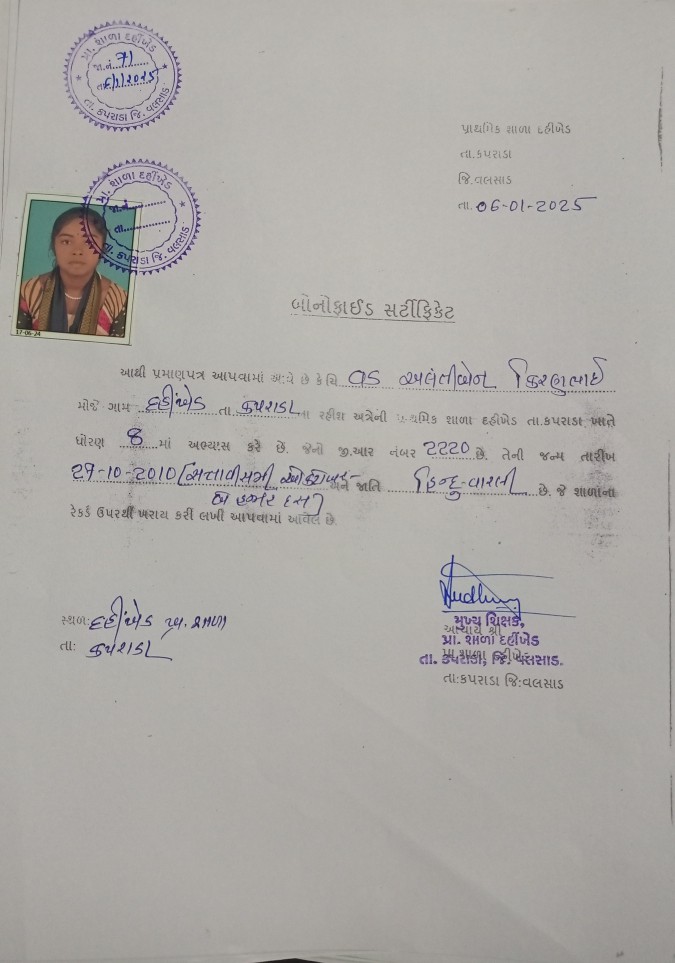 પ્રા. શાળા દહીંખેડ
જા.નં. 71
તા. 6/1/2025
તા. કપરાડા જિ. વલસાડ
પ્રાથમિક શાળા દહીંખેડ
તા.કપરાડા
જિ.વલસાડ
તા. 06-01-2025
પ્રા. શાળા દહીંખેડ
જા.નં.
તા.
તા. કપરાડા જિ. વલસાડ
17-06-24
બોનોફાઈડ સર્ટીફિકેટ
આથી પ્રમાણપત્ર આપવામાં આવે છે કે ચિ કિરણભાઈ
મોજે ગામ દહીંખેડ તા. કપરાડા ના રહીશ અત્રેની પ્રાથમિક શાળા દહીંખેડ તા.કપરાડા ખાતે
ધોરણ 8 માં અભ્યાસ કરે છે. જેનો જી.આર નંબર 2220 છે. તેની જન્મ તારીખ
27-10-2010 (સત્તાવીસમી ઓક્ટોબર અને જાતિ હિન્દુ-વારલી છે. જે શાળાના
બે હજાર દસ)
રેકર્ડ ઉપરથી ખરાય કરી લખી આપવામાં આવેલ છે
સ્થળ: દહીંખેડ પ્રા. શાળા
તા: કપરાડા
મુખ્ય શિક્ષક,
આચાર્ય શ્રી
પ્રા. શાળા દહીંખેડ
પ્રા.શાળા દહીંખેડ
તા. કપરાડા, જિ. વલસાડ.
તા:કપરાડા જિ:વલસાડ